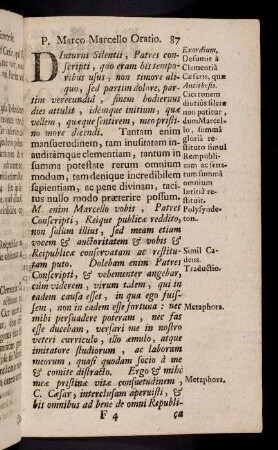 P. Marco Marcello Oratio. 87
Diuturni Silentii, Patres con-
scripti, quo eram his tempo-
ribus usus, non timore ali-
quo, sed partim dolore, par-
tim verecundiâ, finem hodiernus
dies attulit, idemque initium, quæ
vellem, quæque sentirem, meo pristi-
no more dicendi. Tantam enim
mansuetudinem, tam inusitatam in-
auditámque clementiam, tantum in
summa potestate rerum omnium
modum, tam denique incredibilem
sapientiam, ac pene divinam, taci-
tus nullo modo præterire possum.
M. enim Marcello vobis, Patres
Conscripti, Reique publicæ reddito,
non solùm illius, sed meam etiam
vocem & auctoritatem & vobis &
Reipublicæ conservatam ac restitu-
tam puto. Dolebam enim Patres
Conscripti, & vehementer angebar,
cùm viderem, virum talem, qui in
eadem causa esset, in qua ego fuis-
sem, non in eadem esse fortuna: nec
mihi persuadere poteram, nec fas
esse ducebam, versari me in nostro
veteri curriculo, illo æmulo, atque
imitatore studiorum, ac laborum
meorum, quasi quodam socio à me
& comite distracto. Ergo & mihi
meæ pristinæ vitæ consuetudinem,
C. Cæsar, interclusam aperuisti, &
his omnibus ad bene de omni Republi-
F 4 ca
Exordium,
Desumit à
Clementiâ
Cæsaris, quæ
Antithesis.
Ciceronem
diutiùs silere
non patitur
dum Marcel-
lo, summâ
gloriâ re-
stituto simul
Rempubli-
cam ac sena-
tum summâ
omnium
lætitiâ re-
stituit.
Polysynde-
ton.
Simil Ca-
dens.
Traductio.
Metaphora.
Metaphora.